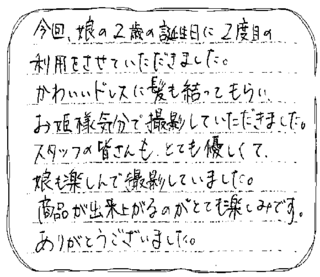 今回、娘の2歳の誕生日に2度目の
利用をさせていただきました。
かわいいドレスに髪も結ってもらい、
お姫様気分で撮影していただきました。
スタッフの皆さんも、とても優しくて、
娘も楽しんで撮影していました。
商品が出来上がるのがとても楽しみです。
ありがとうございました。